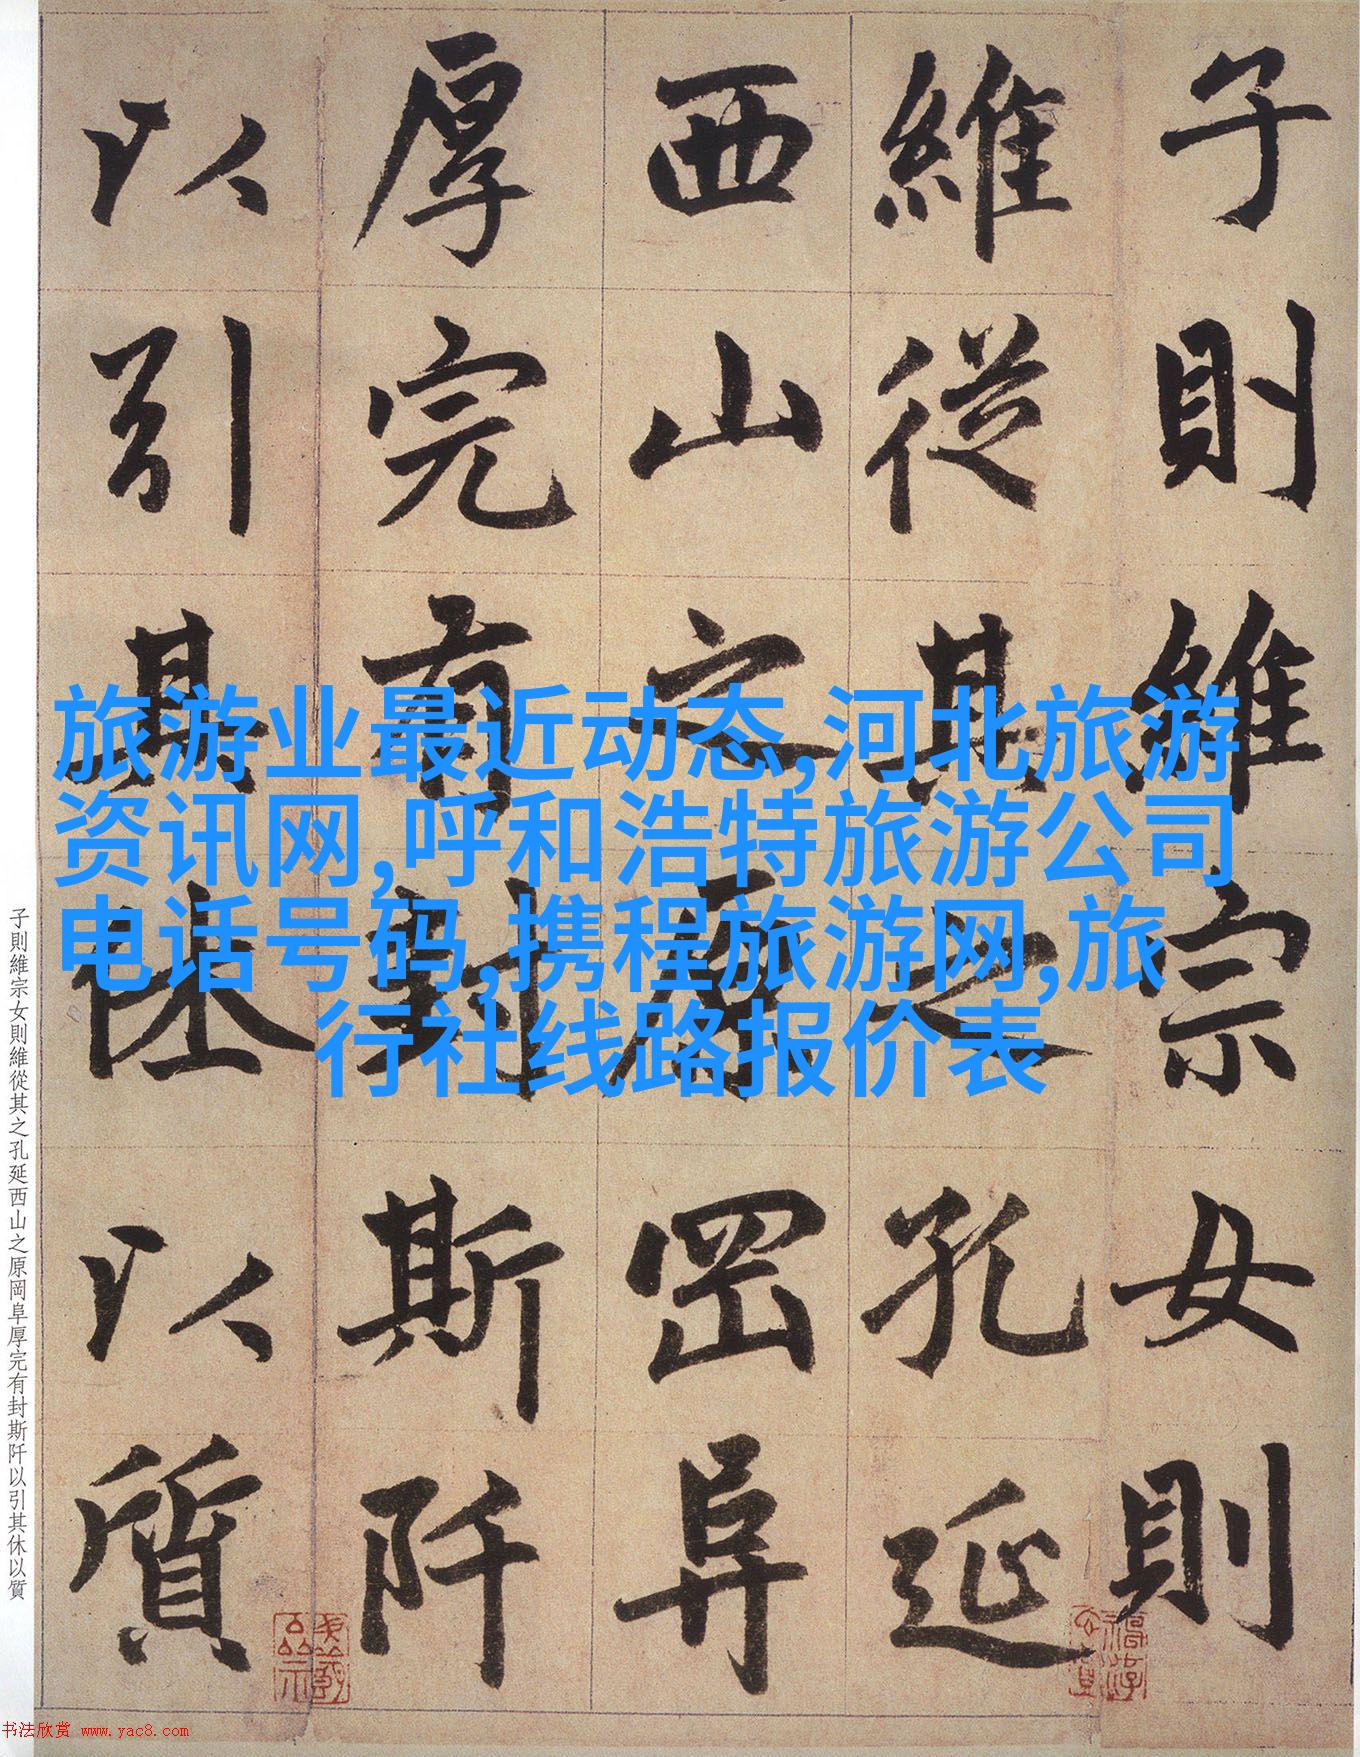 子則維宗女則
維從其之孔延
西山之原岡阜
厚完有封斯阡
以引其休以質
旅游业最近动态,河北旅游
资讯网,呼和浩特旅游公司
电话号码,携程旅游网,旅
行社线路报价表
子則維宗女則維從其之孔延西山之原岡阜厚完有封斯阡以引其休以質
书法欣赏 www.yac8.com